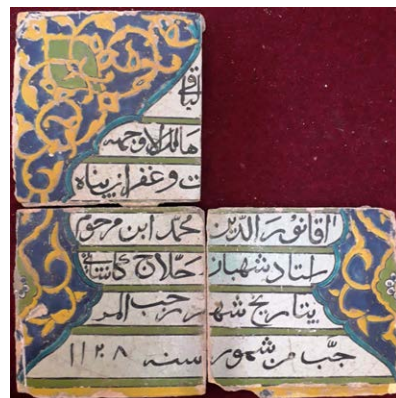 الباقی
هالك الا وجهه
ت و غفران پناه
اقا نور الدین محمد ابن مرحوم
ستاد شهباز حلاج کاشانی
بتاریخ شهر رجب المر
جب من شهور سنه ۱۱۲۸